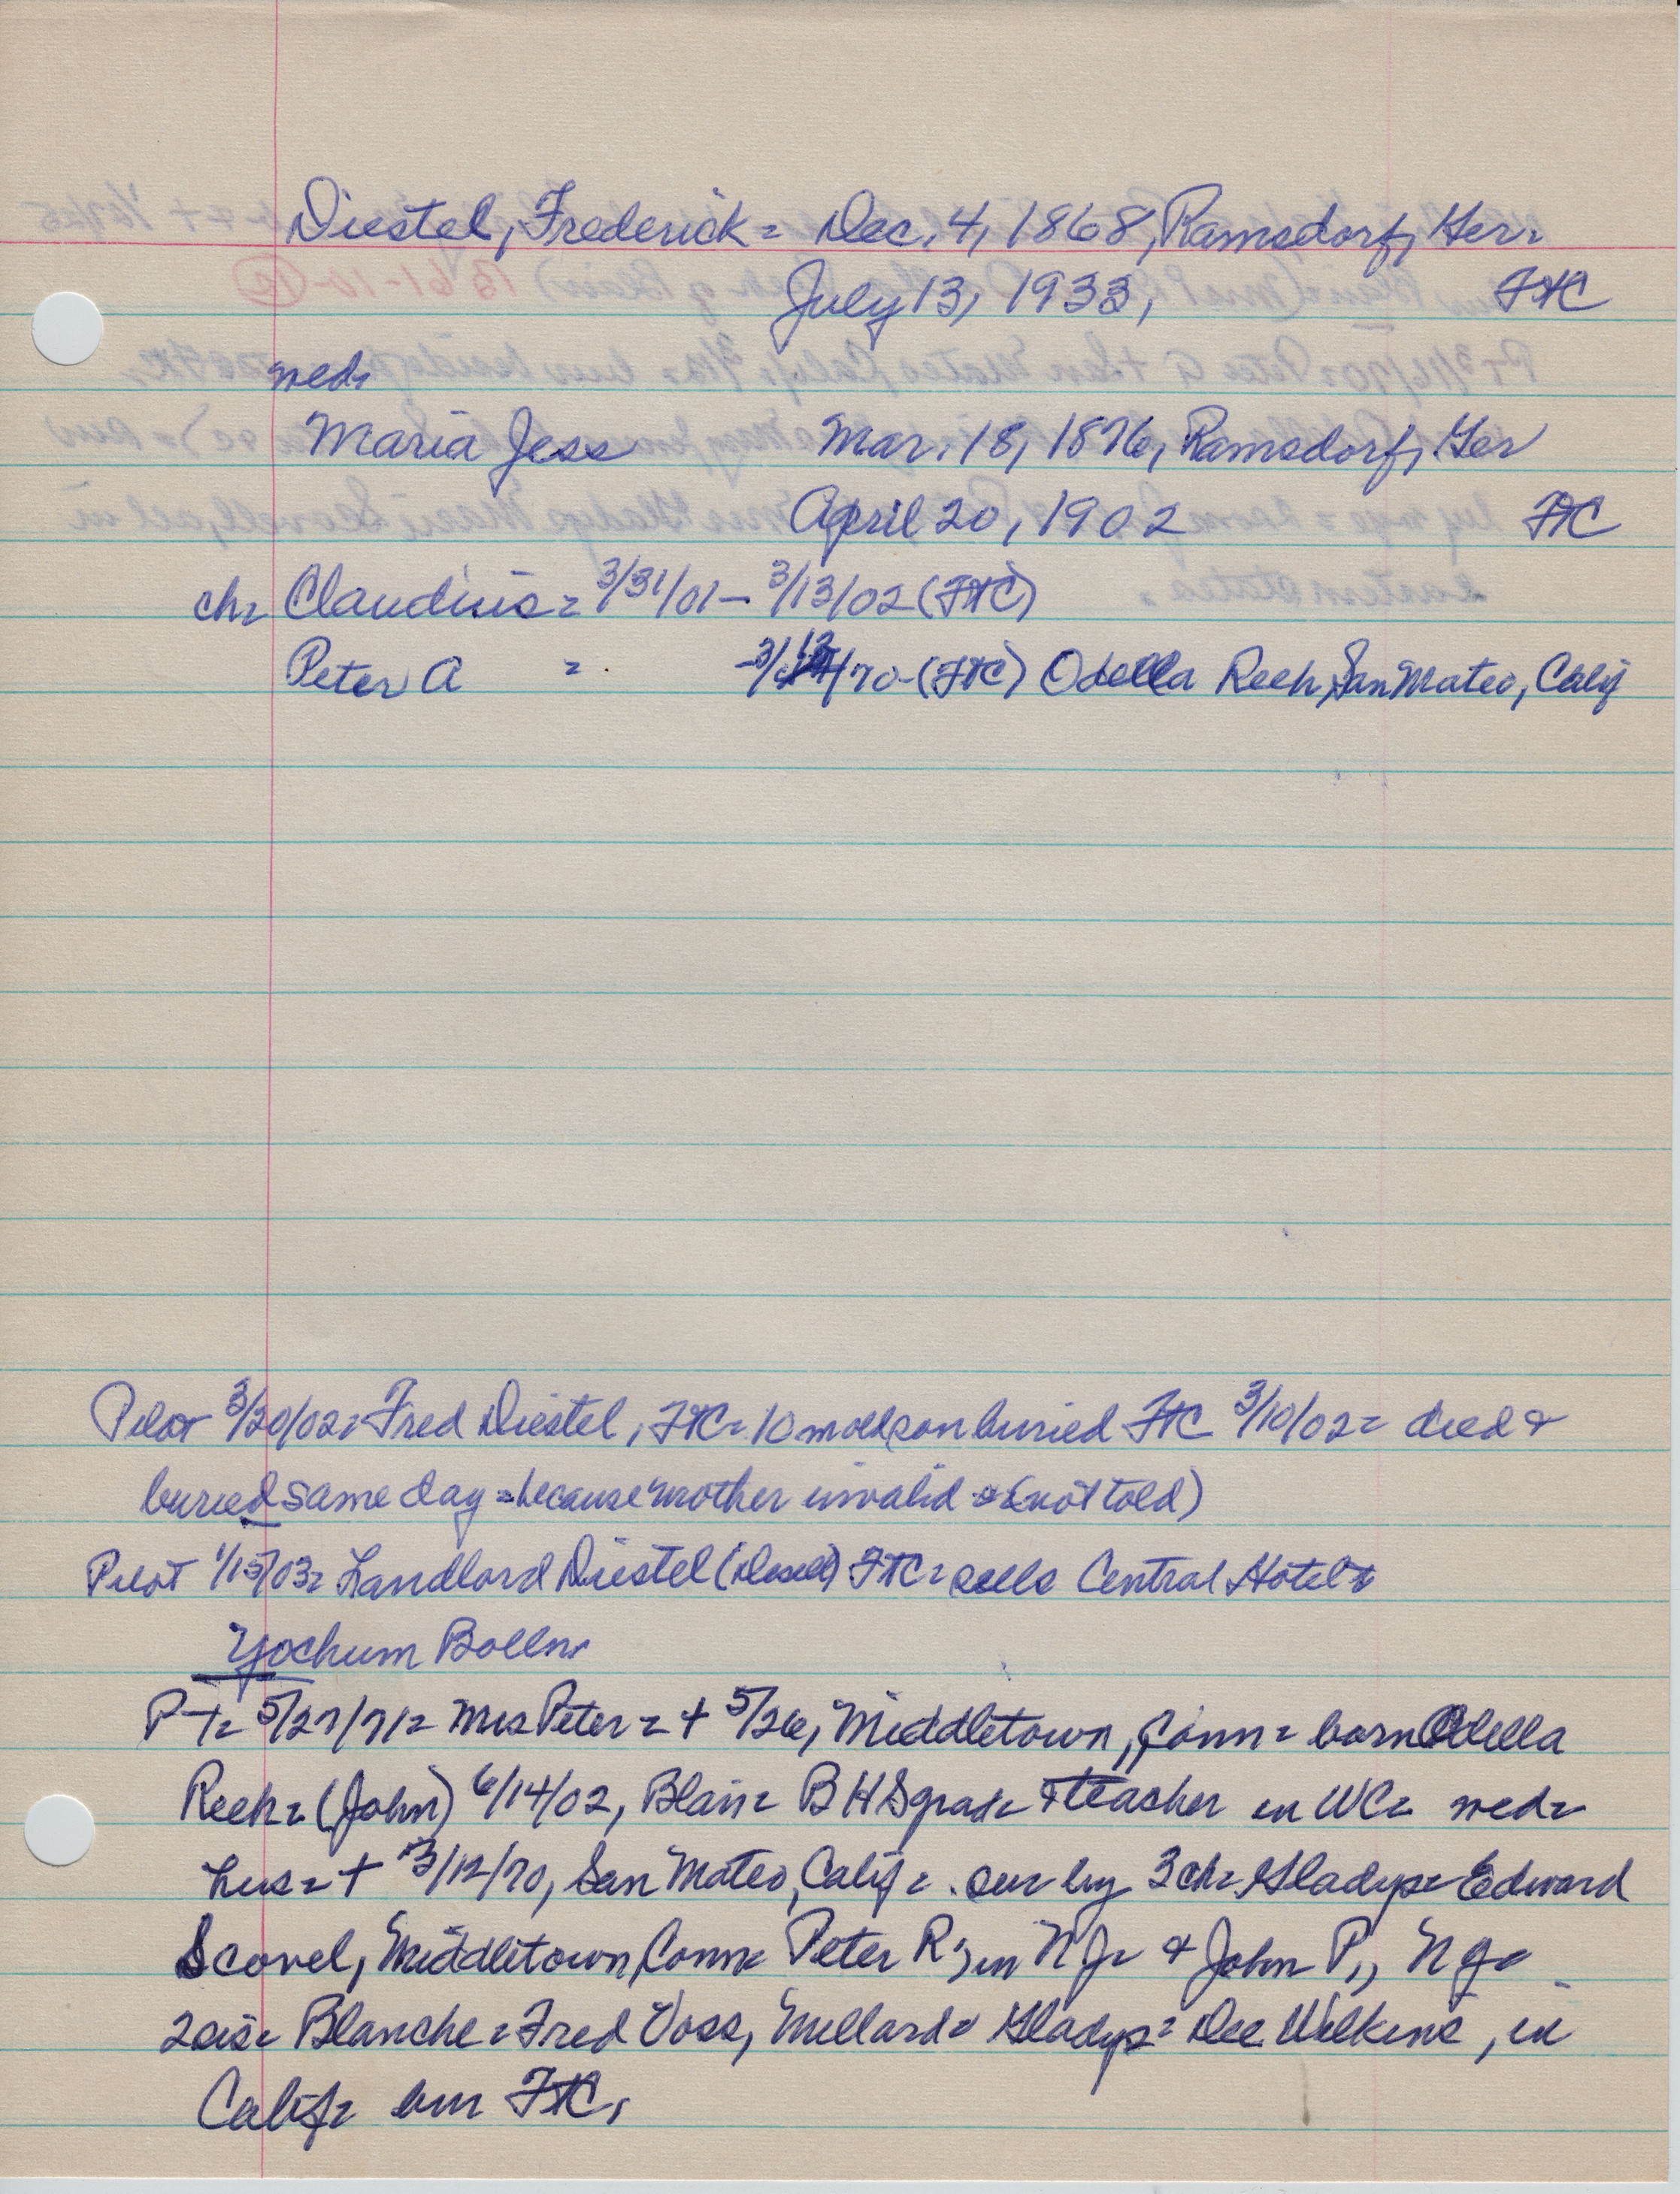 Diestel, Frederick = Dec. 4, 1868, Ramsdorf, Ger.
July 13, 1933, FTC
wed.
Maria Jess Mar. 18, 1876, Ramsdorf, Ger
April 20, 1902 FTC
ch= Claudius = 3/31/01 - 3/13/02 (FTC)
Peter A = - 3/12/70 - (FTC) Odella Reeh, San Mateo, Calif
Pilot 3/20/02 = Fred Diestel, FTC = 10 mo old son buried FTC 3/10/02 = died &
buried same day = because mother invalid & (not told)
Pilot 1/15/03 = Landlord Diestel FTC = sells Central Hotel to
Yochum Bolln.
P-T= 5/27/71 = Mrs Peter = + 5/26, Middletown, Conn = born Odella
Reeh = (John) 6/14/02, Blair = BHS grad = & teacher in WC = wed =
hus = + 3/12/70, San Mateo, Calif = sur by 3 ch = Gladys = Edward
Scovel, Middletown, Conn = Peter R., in NJ = & John P., NY =
2 sis = Blanche = Fred Voss, Millard = Gladys = Dee Wilkins, in
Calif = bur FTC.